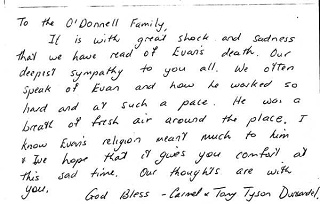 To the O'Donnell Family,
It is with great shock and sadness
that we have read of Evan's death. Our
deepest sympathy to you all. We often
speak of Evan and how he worked so
hard and at such a pace. He was a
breath of fresh air around the place. I
know Evan's religion meant much to him
& We hope that it gives you comfort at
this sad time. Our thoughts are with
you,
God Bless - Carmel & Tony Tyson